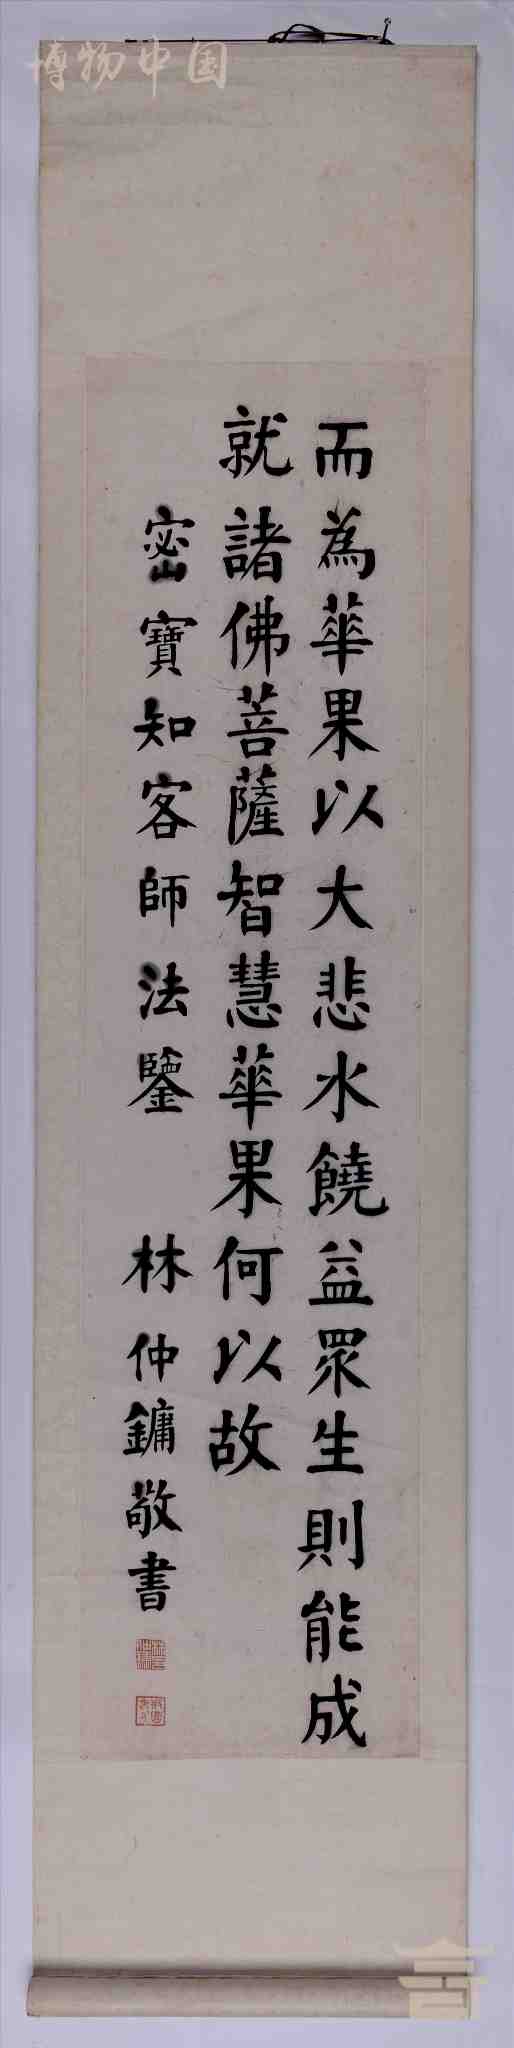 博物中国
而為華果以大悲水饒益眾生則能成
就諸佛菩薩智慧華果何以故
密寶知客師法鑒
林仲鏞敬書